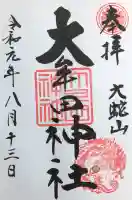 奉拝
大蛇山
大牟田神社
令和元年八月十三日